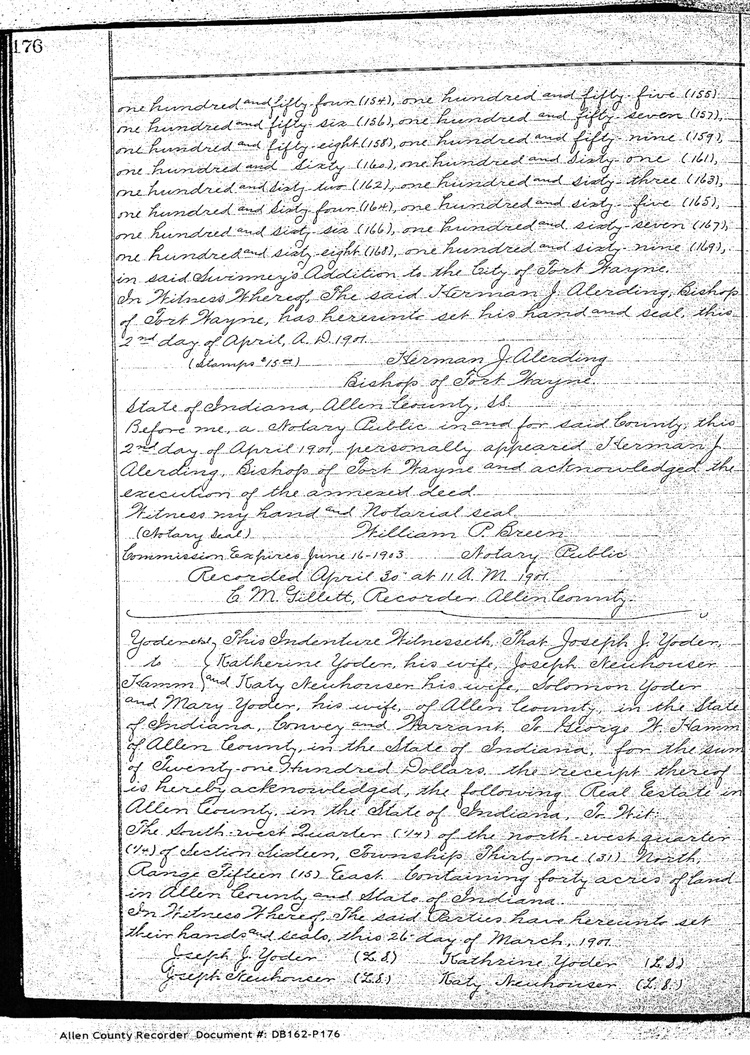 176
one hundred and fifty-four (154), one hundred and fifty-five (155)
one hundred and fifty-six (156), one hundred and fifty-seven (157),
one hundred and fifty-eight (158), one hundred and fifty-nine (159),
one hundred and sixty (160), one hundred and sixty-one (161),
one hundred and sixty-two (162), one hundred and sixty-three (163),
one hundred and sixty-four (164), one hundred and sixty-five (165),
one hundred and sixty-six (166), one hundred and sixty-seven (167),
one hundred and sixty-eight (168), one hundred and sixty-nine (169),
in said Swinney's Addition to the City of Fort Wayne.
In Witness Whereof, The said Herman J. Alerding, Bishop
of Fort Wayne, has hereunto set his hand and seal, this
2nd day of April, A.D. 1901.
(Stamps $15.00) Herman J. Alerding
Bishop of Fort Wayne.
State of Indiana, Allen County, SS.
Before me, a Notary Public in and for said County, this
2nd day of April 1901, personally appeared Herman J.
Alerding, Bishop of Fort Wayne and acknowledged the
execution of the annexed deed.
Witness my hand and Notarial seal
(Notary Seal) William P. Breen
Commission Expires June 16-1903 Notary Public
Recorded April 30 at 11 A.M. 1901
E. M. Gillett, Recorder Allen County.
Yoder et al } This Indenture Witnesseth, That Joseph J. Yoder,
to } Katherine Yoder, his wife, Joseph Neuhouser
Hamm } and Katy Neuhouser his wife, Solomon Yoder
and Mary Yoder, his wife, of Allen County, in the State
of Indiana, Convey and Warrant, To George W. Hamm
of Allen County, in the State of Indiana, for the sum
of Twenty-one Hundred Dollars, the receipt thereof
is hereby acknowledged, the following Real Estate in
Allen County, in the State of Indiana, To Wit:
The South-west Quarter (1/4) of the north-west quarter
(1/4) of Section Sixteen, Township Thirty-one (31) North,
Range Fifteen (15) East. Containing forty acres of land
in Allen County and State of Indiana.
In Witness Whereof, The said Parties have hereunto set
their hands and seals, this 26 day of March, 1901.
Joseph J. Yoder (L.S) Kathrine Yoder (L.S)
Joseph Neuhouser (L.S) Katy Neuhouser (L.S)
Allen County Recorder Document #: DB162-P176